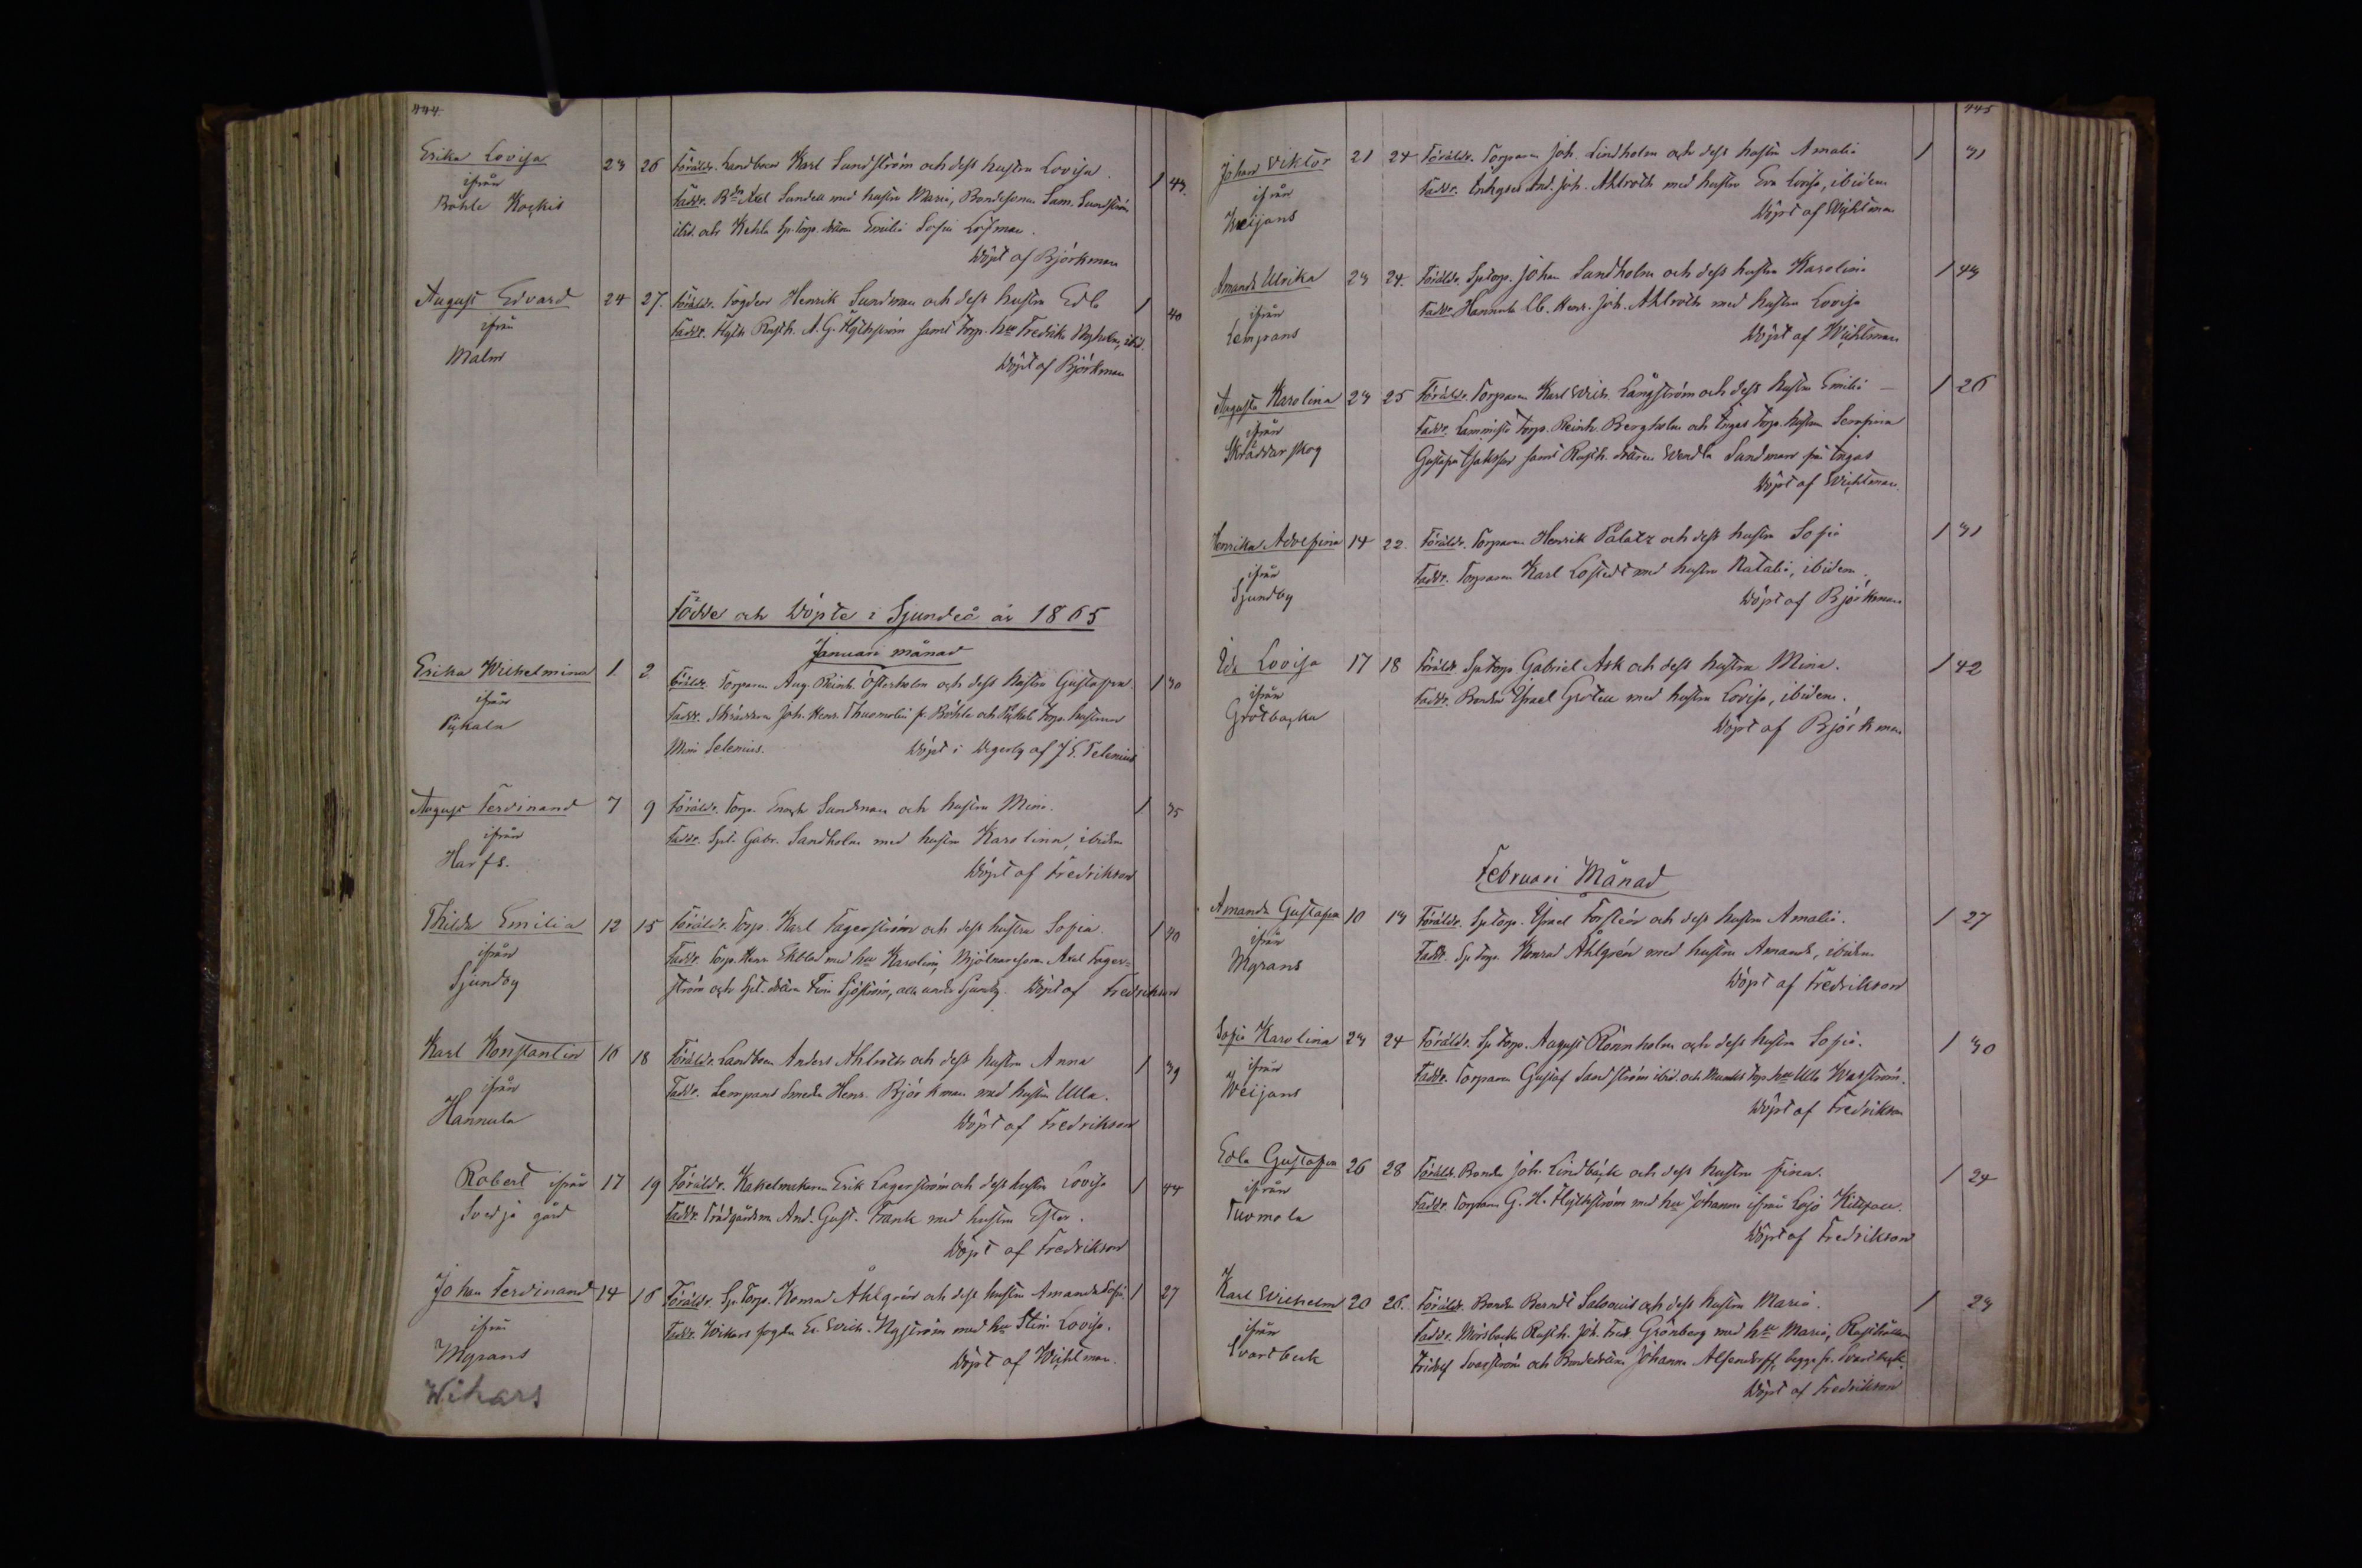 444.
Erika Lovisa 23 26 Föräldr. Landbon Karl Sundström och dess hustru Lovisa. 1 43.
ifrån
Böhle Kockis
Faddr. Bdn Axel Sundell med hustru Maria, Bondesonen Sam. Sundström
ibid. och Kehla Sp. torp. Emilia Sofia Löfman.
Döpt af Björkman
August Edvard 24 27. Föräldr. Fogden Henrik Sundman och dess hustru Edla 1 40
ifrån
Malm
Faddr. Rusth. A. G. samt torp. hu Fredrika Nyholm, ibid.
Döpt af Björkman
Födde och Döpte i Sjundeå år 1865
Januari månad
Erika Wilhelmina 1. 2 Föräldr. Torparen Aug. Reinh. Österholm och dess hustru Gustafva. 1 30
ifrån
Pickala
Faddr. Skräddaren Joh. Henr. Thuomolin fr. Böhle och Pickala torp. hustrun
Mina Selenius. Döpt i Degerby af J. E. Telenius
August Ferdinand 7 9 Föräldr. Torp. Enock Sundman och hustru Mina. 1 35
ifrån
Harfs.
Faddr. Spt. Gabr. Sandholm med hustru Karolina, ibidem
Döpt af Fredrikson
Thilda Emilia 12 15 Föräldr. Torp. Karl Fagerström och dess hustru Sofia. 1 40
ifrån
Sjundby
Faddr. Torp. Henr. Ekblad med hu Karolina, Mjölnaresonen Axel Fager-
ström och Spt. Fina Sjöström, alla under Sjundby. Döpt af Fredrikson
Karl Konstantin 16 18 Föräldr. Landbon Anders Ahlroth och dess hustru Anna 1 39
ifrån
Hannula
Faddr. Lempans Smeden Henr. Björkman med hustru Ulla.
Döpt af Fredrikson
Robert ifrån 17 19 Föräldr. Kakelmakaren Erik Lagerström och dess hustru Lovisa 1 44
Svedja gård
Faddr. Trädgårdsm. And. Gust. Frank med hustru Ester.
Döpt af Fredrikson
Johan Ferdinand 14 16 Föräldr. Sp. Torp. Konrad Åhlgrén och dess hustru Amanda Sofia 1 27
ifrån
Myrans
Faddr. Wikars fogden Er. Wilh. Nyström med hu Stina Lovisa.
Döpt af Wichtman.
Wikars
445
Johan Viktor 21 24 Föräldr. Torparen Joh. Lindholm och dess hustru Amalia 1 31
ifrån
Weijans
Faddr. And. Joh. Ahlroth med hustru Eva Lovisa, ibidem
Döpt af Wichtman
Amanda Ulrika 23 24. Föräldr. Sp. torp. Johan Sandholm och dess hustru Karolina 1 43
ifrån
Lempans
Faddr. Hannula Lb. Henr. Joh. Ahlroth med hustru Lovisa
Döpt af Wichtman
Augusta Karolina 23 25 Föräldr. Torparen Karl Wilh. Långström och dess hustru Emilia 1 26
ifrån
Skräddarskog
Faddr. torp. Reinh. Bergholm och Engas torp. hustru Serafina
Gustafva Isaksson samt Rusth. Wendla Sundman från Engas
Döpt af Wichtman.
Henrika Adolfina 14 22. Föräldr. Torparen Henrik Palatz och dess hustru Sofia 1 31
ifrån
Sjundby
Faddr. Torparen Karl Lostedt med hustru Natalia, ibidem.
Döpt af Björkman
Ida Lovisa 17 18 Föräldr. Sp torp. Gabriel Ask och dess hustru Mina. 1 42
ifrån
Grotbacka
Faddr. Bonden Israel Grotell med hustru Lovisa, ibidem.
Döpt af Björkman
Februari Månad
Amanda Gustafva 10 13 Föräldr. Sp. torp. Israel Forstén och dess hustru Amalia. 1 27
ifrån
Myrans
Faddr. Sp. torp. Konrad Åhlgrén med hustru Amanda, ibidem
Döpt af Fredrikson
Sofia Karolina 23 24 Föräldr. Sp torp. August Rönnholm och dess hustru Sofia. 1 30
ifrån
Weijans
Faddr. Torparen Gustaf Sandström ibid. och Munks torp. hu Ulla Wasström.
Döpt af Fredrikson
Edla Gustafva 26 28 Föräldr. Bonden Joh. Lindbäck och dess hustru Fina. 1 24
ifrån
Tuomola
Faddr. Torparen G. H. med hu Johanna ifrån Lojo
Döpt af Fredrikson
Karl Wilhelm 20 26. Föräldr. Bonden Berndt Salonius och dess hustru Maria. 1 23
ifrån
Svartbeck
Faddr. Mörsbacka Rusth. Joh. Fredr. Grönberg med hu Maria, Rusthållaren
Fridolf Svarström och Johanna Alfendorff, begge fr. Svartbeck.
Döpt af Fredrikson